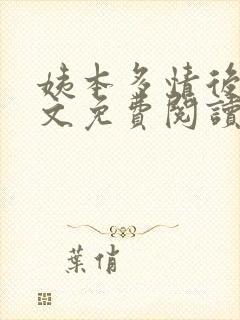 姨本多情後
文免費閱讀
葉俏